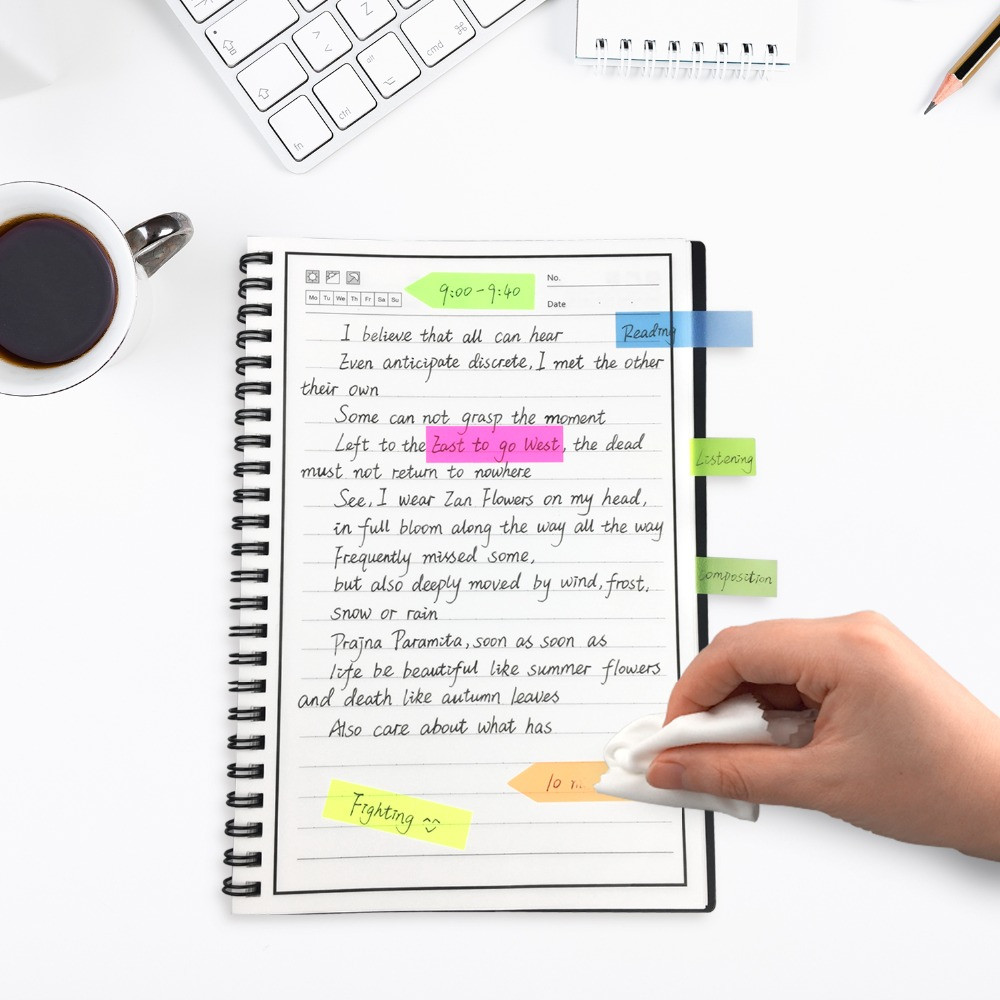 Z
< >
alt
⌥
cmd
⌘
ctrl
fn
9:00-9:40
No.
Mo Tu We Th Fr Sa Su
Date
I believe that all can hear
Reading
Even anticipate discrete, I met the other
their own
Some can not grasp the moment
Left to the East to go West, the dead
Listening
must not return to nowhere
See, I wear Zan Flowers on my head,
in full bloom along the way all the way
Frequently missed some,
but also deeply moved by wind, frost,
Composition
snow or rain
Prajna Paramita, soon as soon as
life be beautiful like summer flowers
and death like autumn leaves
Also care about what has
10
Fighting